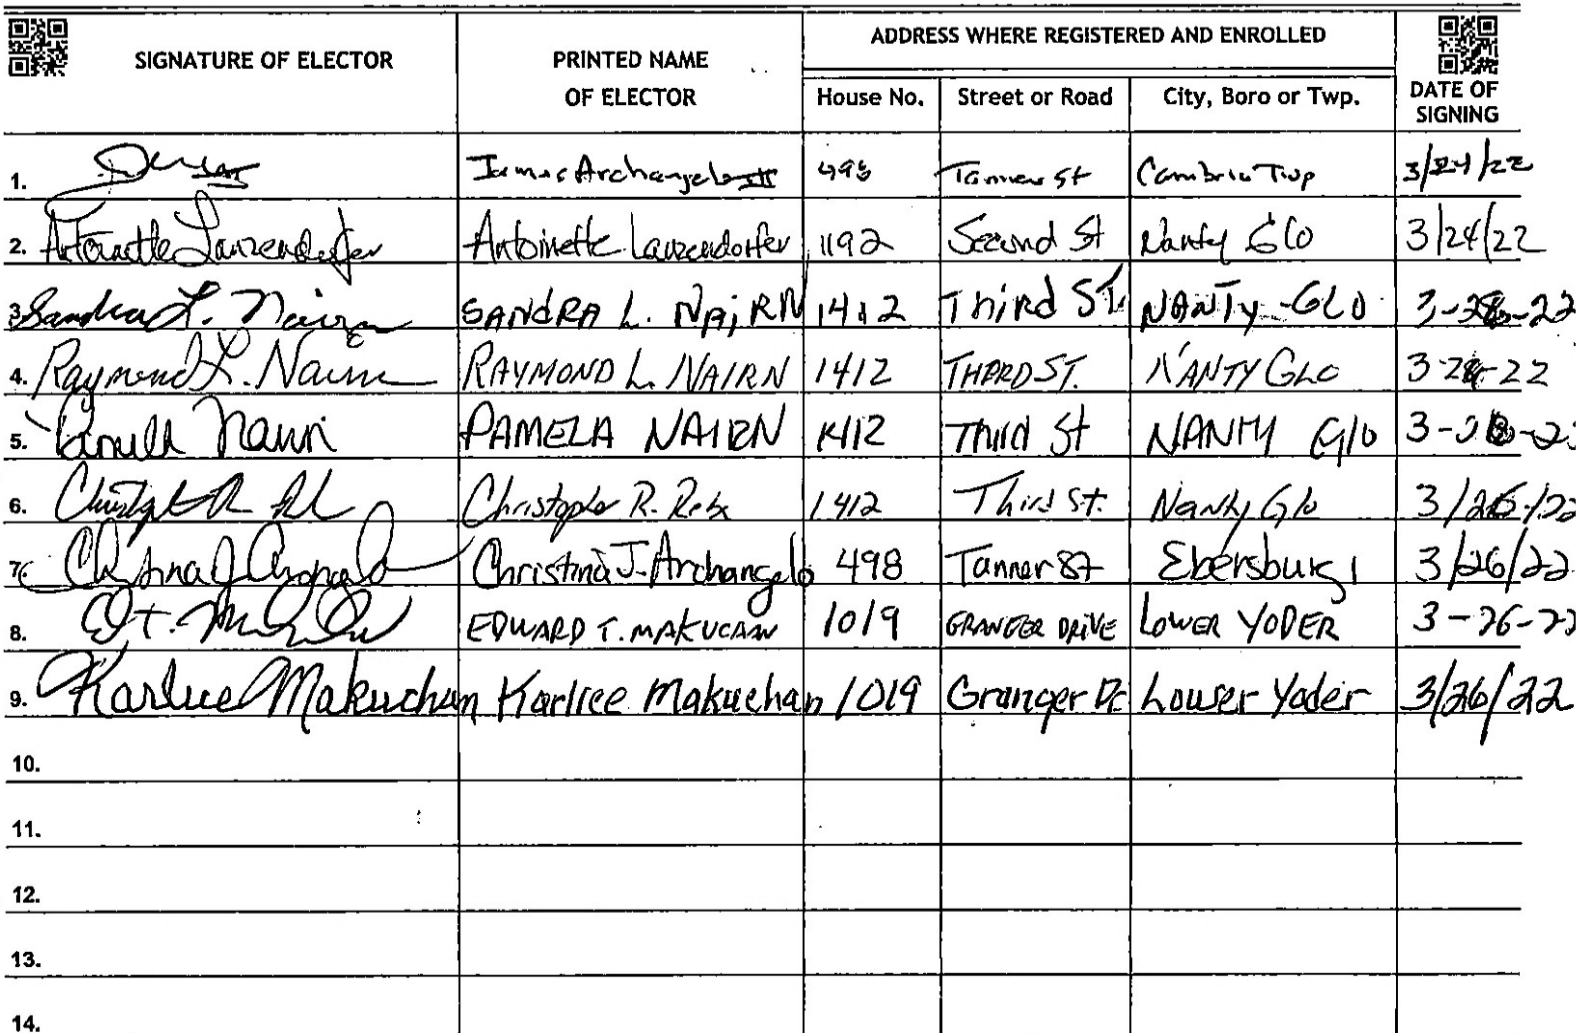 SIGNATURE OF ELECTOR PRINTED NAME OF ELECTOR ADDRESS WHERE REGISTERED AND ENROLLED DATE OF SIGNING
House No. Street or Road City, Boro or Twp.
1. James Archangelo III 498 Tanner St Cambria Twp 3/24/22
2. Antoinette Lanzendorfer Antoinette Lanzendorfer 1192 Second St Nanty Glo 3/24/22
3. Sandra L. Nairn SANDRA L. NAiRN 1412 Third ST. NANTY-GLO
4. Raymond L. Nairn RAYMOND L. NAIRN 1412 THIRD ST. NANTY GLO
5. Pamela Nairn PAMELA NAIRN 1412 Third St NANTY Glo
6. Christopher R. 1412 Third St. Nanty Glo
7. Christina J Archangelo Christina J. Archangelo 498 Tanner St Ebensburg 3/26/22
8. EDWARD T. 1019 GRANGER DRIVE LOWER YODER 3-26-22
9. Karlice Makuchan Karlice Makuchan 1019 Granger Dr Lower Yoder 3/26/22
10.
11.
12.
13.
14.